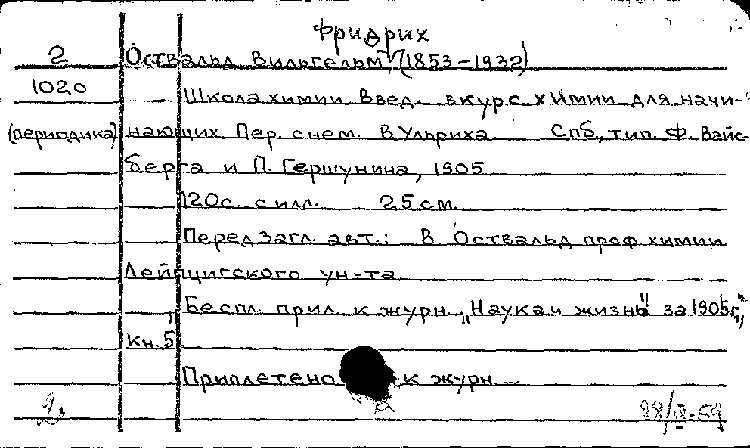 Фридрих
2 Оствальд Вильгельм, (1853-1932)
1020 Школа химии Введ. в курс химии для начи-
(периодика) нающих Пер. с нем. В Ульриха Спб, тип. Ф. Вайс-
берга и П. Гершунина, 1905
120с. с илл. 25 см.
Перед загл. авт.: В Оствальд проф. химии
Лейпцигского ун-та
Беспл. прил. к журн. „Наука и жизнь" за 1905г.,
кн. 5
Приплетено к журн.